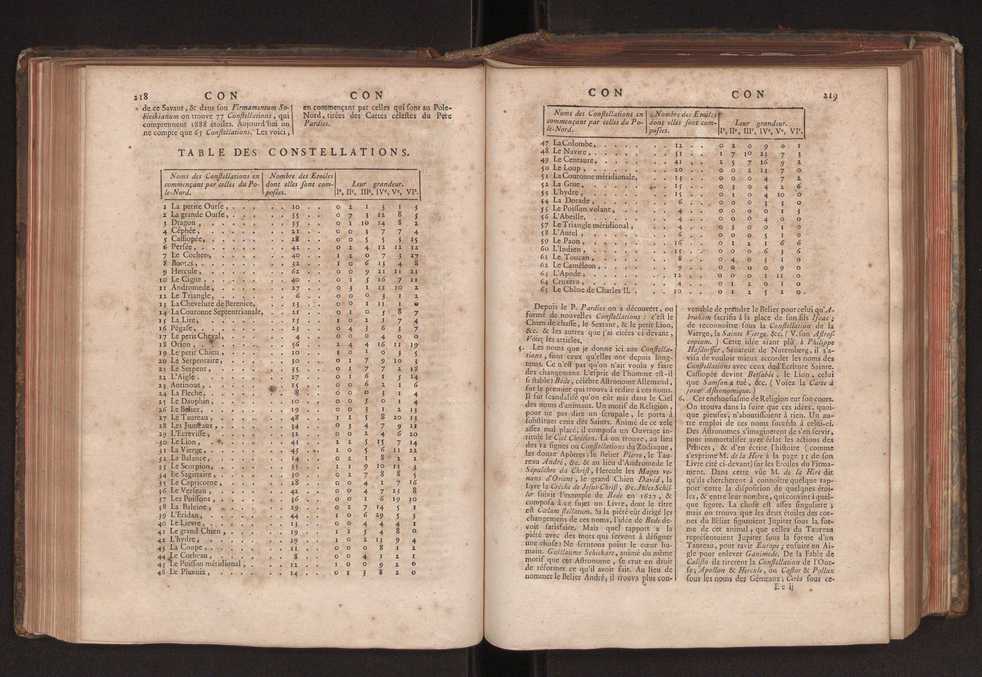 218 CON CON
de ce Savant, & dans son Firmamentum So-
bieskianum on trouve 77 Constellations, qui
comprennent 1888 étoiles. Aujourd'hui on
ne compte que 65 Constellations. Les voici,
en commençant par celles qui sont au Pole-
Nord, tirées des Cartes célestes du Pere
Pardies.
TABLE DES CONSTELLATIONS.
Noms des Constellations en
commençant par celles du Po-
le-Nord.
Nombre des Etoiles
dont elles sont com-
posées.
Leur grandeur.
Iᵉ, IIᵉ, IIIᵉ, IVᵉ, Vᵉ, VIᵉ.
1 La petite Ourse, 10 0 2 1 3 1 5
2 La grande Ourse, 35 0 7 3 12 8 5
3 Dragon, 35 0 1 10 14 8 2
4 Céphée, 21 0 0 3 7 7 4
5 Cassiopée, 28 0 0 5 5 5 15
6 Persée, 42 0 2 4 12 12 12
7 Le Cocher, 40 1 2 0 7 3 27
8 Bootes, 32 1 0 6 13 4 8
9 Hercule, 62 0 0 9 21 11 21
10 Le Cigne, 40 0 1 5 16 7 11
11 Andromede, 27 0 3 2 12 10 2
12 Le Triangle, 6 0 0 0 3 1 2
13 La Chevelure de Berenice,
14 La Couronne Septentrionale, 21 0 1 0 5 8 7
15 La Lire, 17 1 0 2 3 7 4
16 Pégase, 23 0 4 3 6 3 7
17 Le petit Cheval, 4 0 0 0 4 0 0
18 Orion, 56 2 4 4 16 11 19
19 Le petit Chien, 10 1 0 1 0 3 5
20 Le Serpentaire, 30 0 1 7 9 10 3
21 Le Serpent, 35 0 1 7 7 2 18
22 L'Aigle, 27 0 1 6 5 1 14
23 Antinous, 15 0 0 6 2 1 6
24 La Fleche, 8 0 0 0 3 1 4
25 Le Dauphin, 10 0 0 5 0 1 4
26 Le Belier, 19 0 0 3 1 2 13
27 Le Taureau, 48 1 1 5 8 20 13
28 Les Jumeaux, 34 0 3 4 7 9 11
29 L'Ecrevisse, 32 0 0 2 4 6 20
30 Le Lion, 43 2 2 5 13 7 14
31 La Vierge, 45 1 0 5 6 11 22
32 La Balance, 14 0 2 1 8 2 1
33 Le Scorpion, 35 1 1 9 10 11 3
34 Le Sagittaire, 30 0 2 7 8 8 5
35 Le Capricorne, 28 0 0 4 1 7 16
36 Le Verseau, 42 0 0 4 7 15 8
37 Les Poissons, 36 0 0 1 6 19 10
38 La Baleine, 29 0 2 7 14 5 1
39 L'Eridan, 44 1 0 6 29 5 3
40 Le Lievre, 13 0 0 4 4 4 1
41 Le grand Chien, 19 1 2 4 4 8 0
42 L'hydre, 29 1 0 2 13 9 4
43 La Coupe, 11 0 0 0 8 1 2
44 Le Corbeau, 8 0 0 4 1 2 1
45 Le Poisson méridional, 12 1 0 0 9 2 0
46 Le Phœnix, 14 0 1 3 8 2 0
CON CON 219
Noms des Constellations en
commençant par celles du Po-
le-Nord.
Nombre des Etoiles
dont elles sont com-
posées.
Leur grandeur.
Iᵉ, IIᵉ, IIIᵉ, IVᵉ, Vᵉ, VIᵉ.
47 La Colombe, 12 0 2 0 9 0 1
48 Le Navire, 51 1 7 10 23 7 3
49 Le Centaure, 41 2 5 7 16 9 2
50 Le Loup, 20 0 0 2 11 7 0
51 La Couronne méridionale, 13 0 0 0 4 7 2
52 La Grue, 15 0 3 0 4 2 6
53 L'hydre, 15 0 1 0 4 10 0
54 La Dorade, 6 0 0 1 3 2 0
55 Le Poisson volant,
56 L'Abeille, 4 0 0 0 4 0 0
57 Le Triangle méridional, 4 0 3 0 0 1 0
58 L'Autel,
59 Le Paon, 16 0 1 2 1 6 6
60 L'Indien,
61 Le Toucan, 8 0 4 0 3 1 0
62 Le Caméleon, 9 0 0 0 0 9 0
63 L'Apode,
64 Cruxero, 4 0 1 2 0 1 0
65 Le Chêne de Charles II. 10 0 1 2 5 2 0
Depuis le P. Pardies on a découvert, ou
formé de nouvelles Constellations : c'est le
Chien de chasse, le Sextant, & le petit Lion,
&c. & les autres que j'ai citées ci devant,
Voïez les articles.
5. Les noms que je donne ici aux Constella-
tions, sont ceux qu'elles ont depuis long-
tems. Ce n'est pas qu'on n'ait voulu y faire
des changemens. L'esprit de l'homme est-il
si stable? Bède, célèbre Astronome Allemand,
fut le premier qui trouva à redire à ces noms.
Il fut scandalisé qu'on eût mis dans le Ciel
des noms d'animaux. Un motif de Religion,
pour ne pas dire un scrupule, le porta à
substituer ceux des Saints. Animé de ce zele
assez mal placé, il composa un Ouvrage in-
titulé le Ciel Chrétien. Là on trouve, au lieu
des 12 signes ou Constellations du Zodiaque,
les douze Apôtres : le Belier Pierre, le Tau-
reau André, &c. & au lieu d'Andromede le
Sépulchre du Christ, Hercule les Mages ve-
nans d'Orient, le grand Chien David, la
Lyre la Créche de Jesus-Christ, &c. Jules Schil-
ler suivit l'exemple de Bède en 1627, &
composa à ce sujet un Livre, dont le titre
est Cœlum stellatum. Si la piété eût dirigé les
changemens de ces noms, l'idée de Bède de-
voit satisfaire. Mais quel rapport à la
piété avec des mots qui servent à désigner
une chose? Ne scrutons point le cœur hu-
main. Guillaume Schickare, animé du même
motif que cet Astronome, se crut en droit
de réformer ce qu'il avoit fait. Au lieu de
nommer le Belier André, il trouva plus con-
venable de prendre le Belier pour celui qu'A-
braham sacrifia à la place de son fils Isaac ;
de reconnoître sous la Constellation de la
Vierge, la Sainte Vierge, &c. ( V. son Astros-
copium. ) Cette idée aïant plû à Philippe
Hasdorffer, Senateur de Nuremberg, il s'a-
visa de vouloir mieux accorder les noms des
Constellations avec ceux de l'Ecriture Sainte.
Cassiopée devint Betsabée, le Lion, celui
que Samson a tué, &c. ( Voïez la Carte à
jouer Astronomique. )
6. Cet enthousiasme de Religion eut son cours.
On trouva dans la suite que ces idées, quoi-
que pieuses, n'aboutissoient à rien. Un au-
tre emploi de ces noms succéda à celui-ci.
Des Astronomes s'imaginerent de s'en servir,
pour immortaliser avec éclat les actions des
Princes, & d'en écrire l'histoire ( comme
s'exprime M. de la Hire à la page 15 de son
Livre cité ci-devant) sur les Etoiles du Firma-
ment. Dans cette vûe M. de la Hire dit
qu'ils chercherent à connoître quelque rap-
port entre la disposition de quelques étoi-
les, & entre leur nombre, qui convint à quel-
que figure. La chose est assez singuliere ;
mais on trouva que les deux étoiles des cor-
nes du Belier figuroient Jupiter sous la for-
me de cet animal, que celles du Taureau
représentoient Jupiter sous la forme d'un
Taureau, pour ravir Europe ; ensuite en Ai-
gle pour enlever Ganimede. De la Fable de
Calisto ils tirerent la Constellation de l'Our-
se ; Apollon & Hercule, ou Castor & Pollux
sous les noms des Gémeaux ; Cerès sous ce-
E e ij